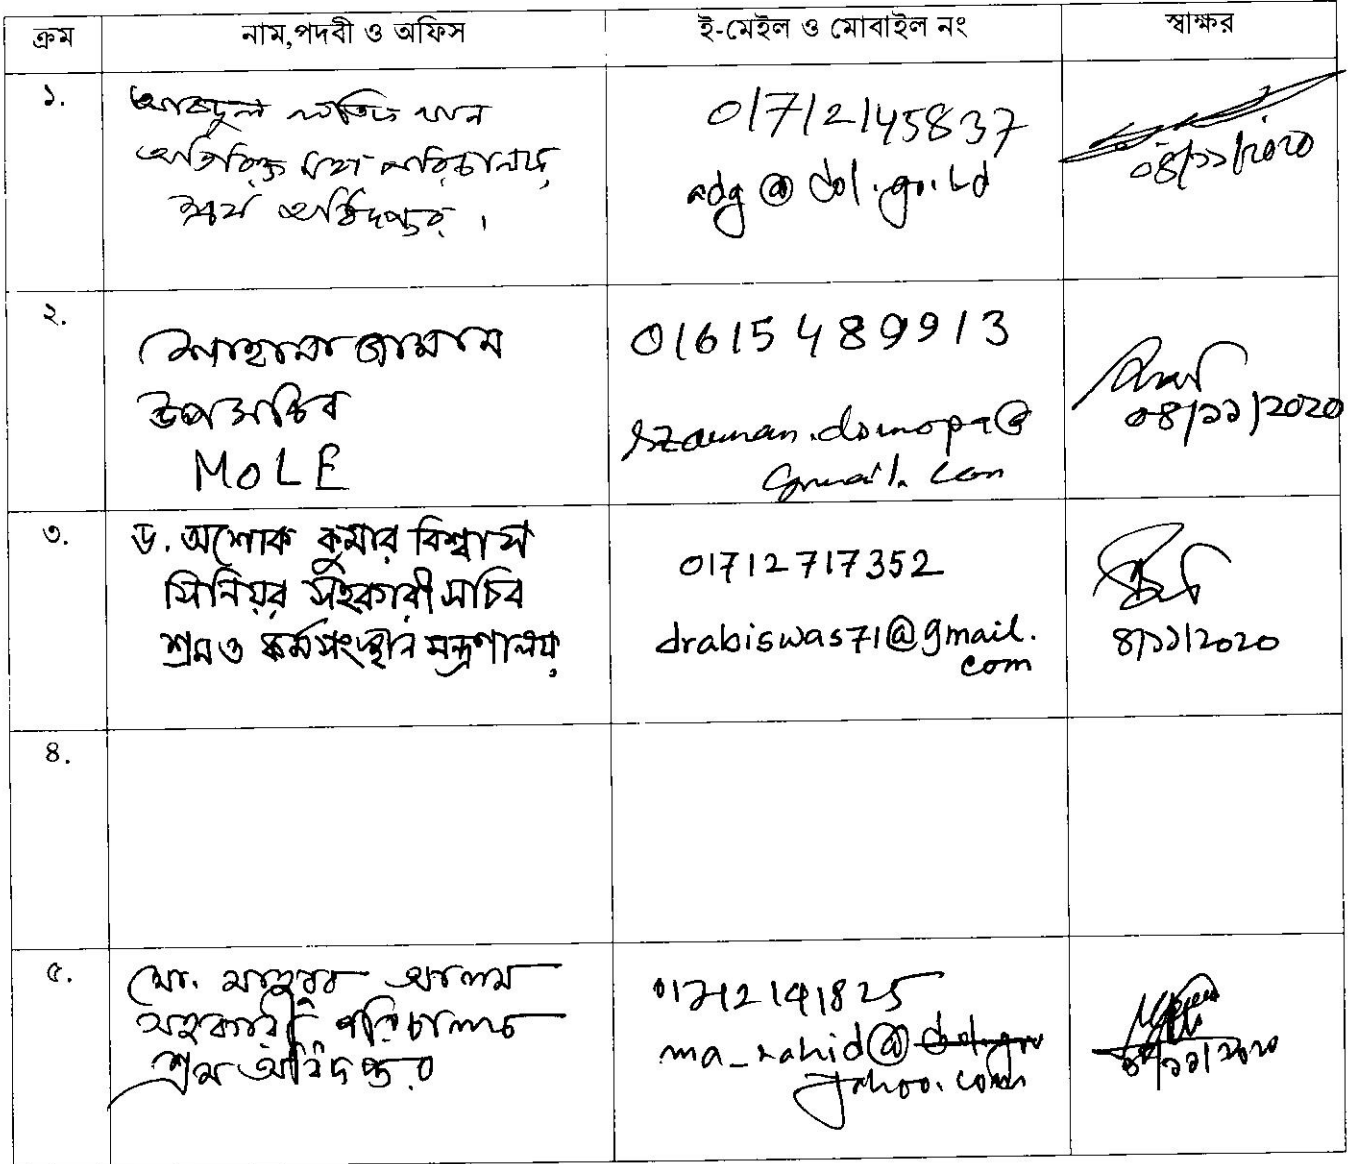 ক্রম নাম,পদবী ও অফিস ই-মেইল ও মোবাইল নং স্বাক্ষর
১.
আবদুল লতিফ খান
অতিরিক্ত মহা পরিচালক,
শ্রম অধিদপ্তর ।
01712145837
adg@dol.gov.bd
08/১১/2020
২.
শোহানা জামান
উপসচিব
MOLE
01615489913
gmail.com
08/১১/2020
৩.
ড. অশোক কুমার বিশ্বাস
সিনিয়র সহকারী সচিব
শ্রম ও কর্মসংস্থান মন্ত্রণালয়
01712717352
drabiswas71@gmail.
com
8/১১/2020
৪.
৫.
মো. মাহবুব আলম
সহকারী পরিচালক
শ্রম অধিদপ্তর
ma_rahid@dol.gov
yahoo.com
08/১১/2020